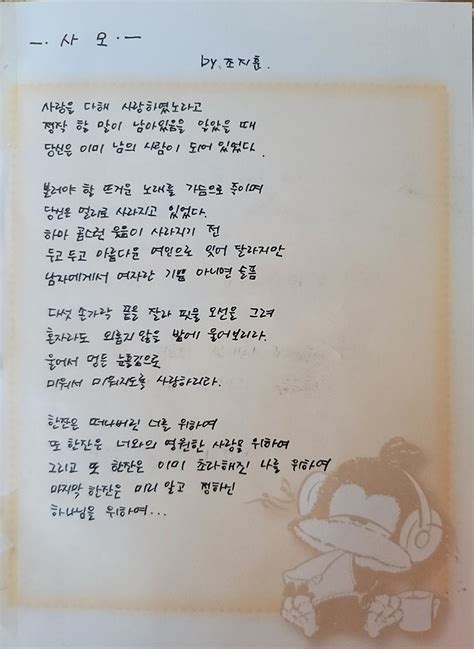 — · 사 모 · —
by. 조지훈.
사랑을 다해 사랑하였노라고
정작 할 말이 남아있음을 알았을 때
당신은 이미 남의 사람이 되어 있었다.
불러야 할 뜨거운 노래를 가슴으로 죽이며
당신은 멀리로 사라지고 있었다.
하마 곱스런 웃음이 사라지기 전
두고 두고 아름다운 여인으로 잊어 달라지만
남자에게서 여자란 기쁨 아니면 슬픔
다섯 손가락 끝을 잘라 핏물 오선을 그려
혼자라도 외롭지 않을 밤에 울어보리라.
울어서 멍든 눈흘김으로
미워서 미워지도록 사랑하리라.
한잔은 떠나버린 너를 위하여
또 한잔은 너와의 영원한 사랑을 위하여
그리고 또 한잔은 이미 초라해진 나를 위하여
마지막 한잔은 미리 알고 정하신
하나님을 위하여...